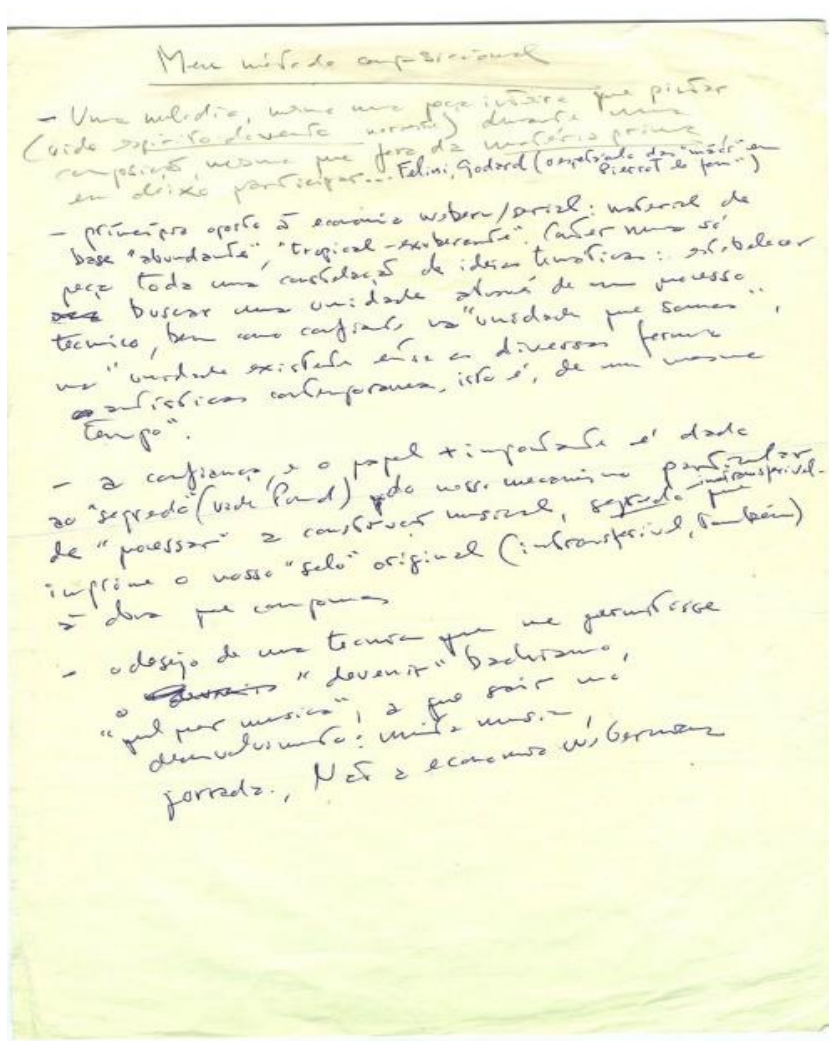 Meu método composicional
- Uma melodia, mesmo uma peça inteira que pintar
(vide espírito durante uma
composição, mesmo que fora da matéria prima
eu deixo participar... Felini, Godard (o espetáculo das em
Pierrot le fou")
- princípio oposto à economia webern/serial: material de
base "abundante", "tropical-exuberante". Conter numa só
peça toda uma constelação de ideias temáticas: estabelecer
buscar uma unidade através de um processo
técnico, bem como confiante na "unidade que somos",
na "unidade existente entre as diversas formas
artísticas contemporaneas, isto é, de um mesmo
tempo".
- a confiança, e o papel + importante é dada
ao "segredo" (vide Pound) do nosso mecanismo particular
de "processar" a construção musical, segredo intransferivel -
que
imprime o nosso "selo" original (intransferivel, também)
à obra que compomos
- o desejo de uma tecnica que me permitisse
o "devenir" bachiano,
música", a que sair no
desenvolvimento: minha musica
jorrada., Não a economia weberniana